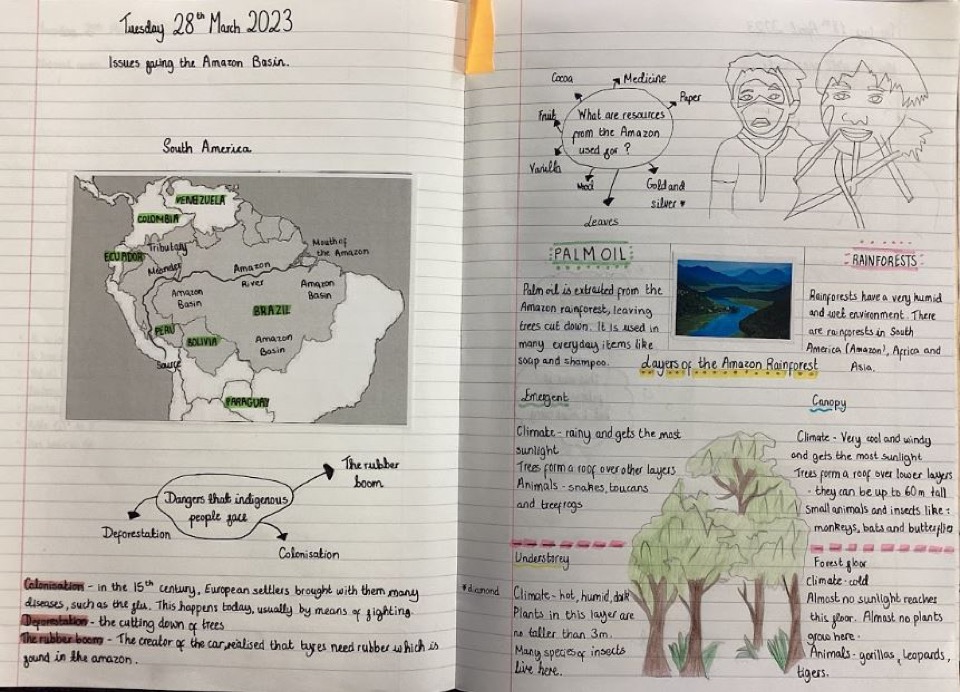 Tuesday 28th March 2023
Issues facing the Amazon Basin.
South America
VENEZUELA
COLOMBIA
ECUADOR
Tributary
Meander
Mouth of
the Amazon
Amazon
River
Amazon
Basin
Amazon
Basin
BRAZIL
PERU
BOLIVIA
Amazon
Basin
Source
PARAGUAY
Dangers that indigenous
people face
The rubber
boom
Deforestation
Colonisation
Colonisation - in the 15th century, European settlers brought with them many
diseases, such as the flu. This happens today, usually by means of fighting.
Deforestation - the cutting down of trees
The rubber boom - The creator of the car, realised that tyres need rubber which is
found in the amazon.
What are resources
from the Amazon
used for?
Cocoa
Medicine
Paper
Fruit
Vanilla
Wood
Leaves
Gold and
silver *
PALM OIL
Palm oil is extracted from the
Amazon rainforest, leaving
trees cut down. It is used in
many everyday items like
soap and shampoo.
RAINFORESTS
Rainforests have a very humid
and wet environment. There
are rainforests in South
America (Amazon), Africa and
Asia.
Layers of the Amazon Rainforest
Emergent
Climate - rainy and gets the most
sunlight
Trees form a roof over other layers
Animals - snakes, toucans
and treefrogs
Canopy
Climate - Very cool and windy
and gets the most sunlight
Trees form a roof over lower layers
- they can be up to 60m tall
Small animals and insects like :
monkeys, bats and butterflies
Understorey
Climate - hot, humid, dark
Plants in this layer are
no taller than 3m.
Many species of insects
live here.
*diamond
Forest floor
Climate - cold
Almost no sunlight reaches
this floor. Almost no plants
grow here.
Animals - gorillas, leopards,
tigers.